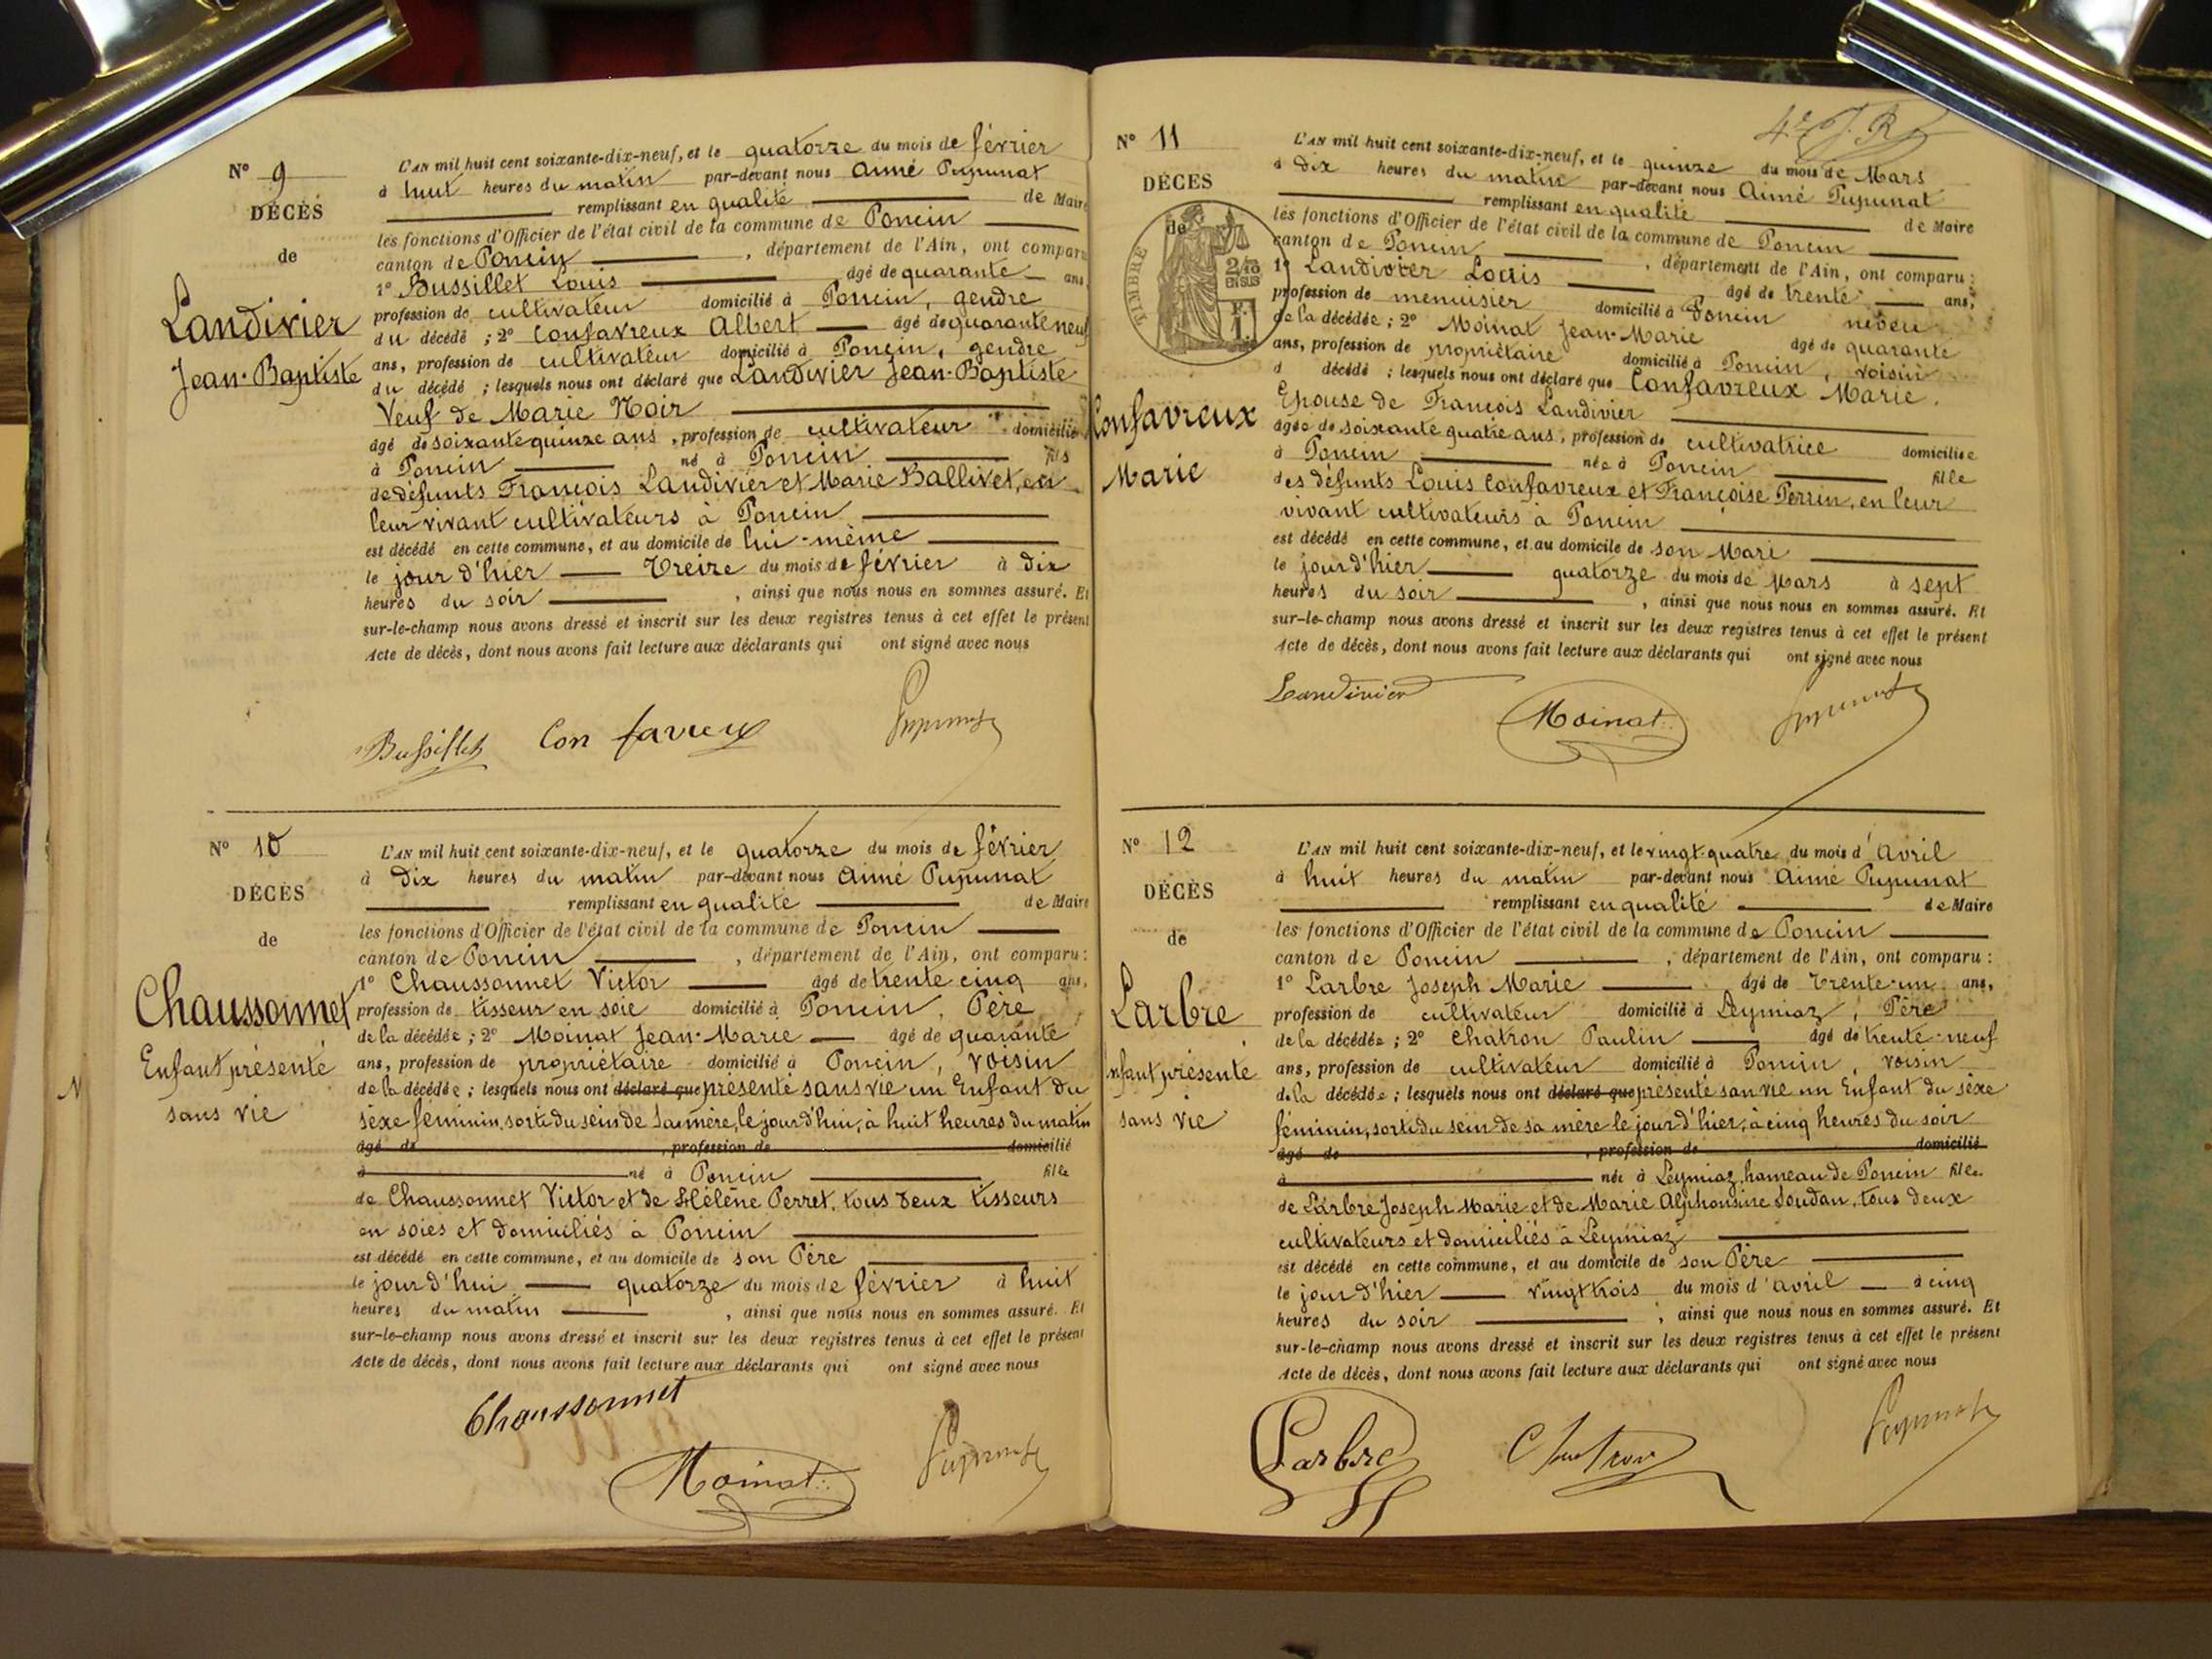 N° 9
DÉCÈS
de
Landivier
Jean-Baptiste
L'AN mil huit cent soixante-dix-neuf, et le quatorze du mois de février
à huit heures du matin par-devant nous Aimé Pupunat
remplissant en qualité de Maire
les fonctions d'Officier de l'état civil de la commune de Poncin
canton de Poncin, département de l'Ain, ont comparu
1° Bussillet Louis âgé de quarante ans,
profession de cultivateur domicilié à Poncin, gendre
du décédé ; 2° Confavreux Albert âgé de quarante neuf
ans, profession de cultivateur domicilié à Poncin, gendre
du décédé ; lesquels nous ont déclaré que Landivier Jean-Baptiste
Veuf de Marie Noir
âgé de soixante quinze ans, profession de cultivateur domicilié
à Poncin né à Poncin fils
de défunts François Landivier et Marie Ballivet, en
leur vivant cultivateurs à Poncin
est décédé en cette commune, et au domicile de lui-même
le jour d'hier Treize du mois de février à dix
heures du soir, ainsi que nous nous en sommes assuré. Et
sur-le-champ nous avons dressé et inscrit sur les deux registres tenus à cet effet le présent
Acte de décès, dont nous avons fait lecture aux déclarants qui ont signé avec nous
Bussillet Confavreux Pupunat
N° 10
DÉCÈS
de
Chaussonnet
Enfant présenté
sans vie
N
L'AN mil huit cent soixante-dix-neuf, et le quatorze du mois de février
à dix heures du matin par-devant nous Aimé Pupunat
remplissant en qualité de Maire
les fonctions d'Officier de l'état civil de la commune de Poncin
canton de Poncin, département de l'Ain, ont comparu :
1° Chaussonnet Victor âgé de trente cinq ans,
profession de tisseur en soie domicilié à Poncin, Père
de la décédée ; 2° Moinat Jean-Marie âgé de quarante
ans, profession de propriétaire domicilié à Poncin, voisin
de la décédée ; lesquels nous ont déclaré que présenté sans vie un Enfant du
sèxe féminin, sorti du sein de sa mère, le jour d'hui, à huit heures du matin
âgé de, profession de domicilié
à né à Poncin fille
de Chaussonnet Victor et de Hélène Perret, tous deux tisseurs
en soies et domiciliés à Poncin
est décédé en cette commune, et au domicile de son Père
le jour d'hui quatorze du mois de février à huit
heures du matin, ainsi que nous nous en sommes assuré. Et
sur-le-champ nous avons dressé et inscrit sur les deux registres tenus à cet effet le présent
Acte de décès, dont nous avons fait lecture aux déclarants qui ont signé avec nous
Chaussonnet
Moinat Pupunat
4e
N° 11
DÉCÈS
de
TIMBRE
2/10
EN SUS
Confavreux
Marie
L'AN mil huit cent soixante-dix-neuf, et le quinze du mois de Mars
à dix heures du matin par-devant nous Aimé Pupunat
remplissant en qualité de Maire
les fonctions d'Officier de l'état civil de la commune de Poncin
canton de Poncin, département de l'Ain, ont comparu :
1° Landivier Louis âgé de trente ans,
profession de menuisier domicilié à Poncin neveu
de la décédée ; 2° Moinat Jean-Marie âgé de quarante
ans, profession de propriétaire domicilié à Poncin, voisin
d décédé ; lesquels nous ont déclaré que Confavreux Marie,
Epouse de François Landivier
âgée de soixante quatre ans, profession de cultivatrice domiciliée
à Poncin née à Poncin fille
des défunts Louis Confavreux et Françoise Perrin, en leur
vivant cultivateurs à Poncin
est décédé en cette commune, et au domicile de son Mari
le jour d'hier quatorze du mois de Mars à sept
heures du soir, ainsi que nous nous en sommes assuré. Et
sur-le-champ nous avons dressé et inscrit sur les deux registres tenus à cet effet le présent
Acte de décès, dont nous avons fait lecture aux déclarants qui ont signé avec nous
Landivier
Moinat Pupunat
N° 12
DÉCÈS
de
Larbre
Enfant présenté
sans vie
L'AN mil huit cent soixante-dix-neuf, et le vingt-quatre du mois d'avril
à huit heures du matin par-devant nous Aimé Pupunat
remplissant en qualité de Maire
les fonctions d'Officier de l'état civil de la commune de Poncin
canton de Poncin, département de l'Ain, ont comparu :
1° Larbre Joseph Marie âgé de Trente-un ans,
profession de cultivateur domicilié à Leymiaz, Père
de la décédée ; 2° Chatron Paulin âgé de trente-neuf
ans, profession de cultivateur domicilié à Poncin, voisin
de la décédée ; lesquels nous ont déclaré que présenté san vie un Enfant du sèxe
féminin, sorti du sein de sa mère le jour d'hier, à cinq heures du soir
âgé de, profession de domicilié
à née à Leymiaz, hameau de Poncin fille
de Larbre Joseph Marie et de Marie Alphonsine Soudan, tous deux
cultivateurs et domiciliés à Leymiaz
est décédé en cette commune, et au domicile de son Père
le jour d'hier vingt trois du mois d'avril à cinq
heures du soir, ainsi que nous nous en sommes assuré. Et
sur-le-champ nous avons dressé et inscrit sur les deux registres tenus à cet effet le présent
Acte de décès, dont nous avons fait lecture aux déclarants qui ont signé avec nous
Larbre Chatron Pupunat